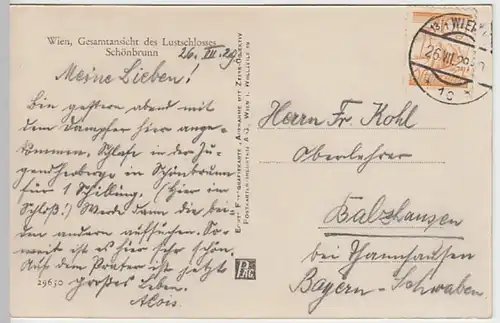 Wien, Gesamtansicht des Lustschlosses
Schönbrunn
26. VII. 29.
Meine Lieben!
Bin gestern abend mit
dem Dampfer hier ange-
kommen. Schlafe in der Ju-
gendherberge in Schönbrunn
für 1 Schilling. (Hier im
Schloß!) Werde dann die bei-
den andern aufsuchen. So-
weit ist es hier sehr schön.
Auf dem Prater ist jetzt
großes Leben.
Alois.
29650
Postkarten-Industrie A.-G., Wien I.
PAG
WIEN
26.VII.29
Herrn Fr. Kohl
Oberlehrer
Balzhausen
bei Thannhausen
Bayern-Schwaben